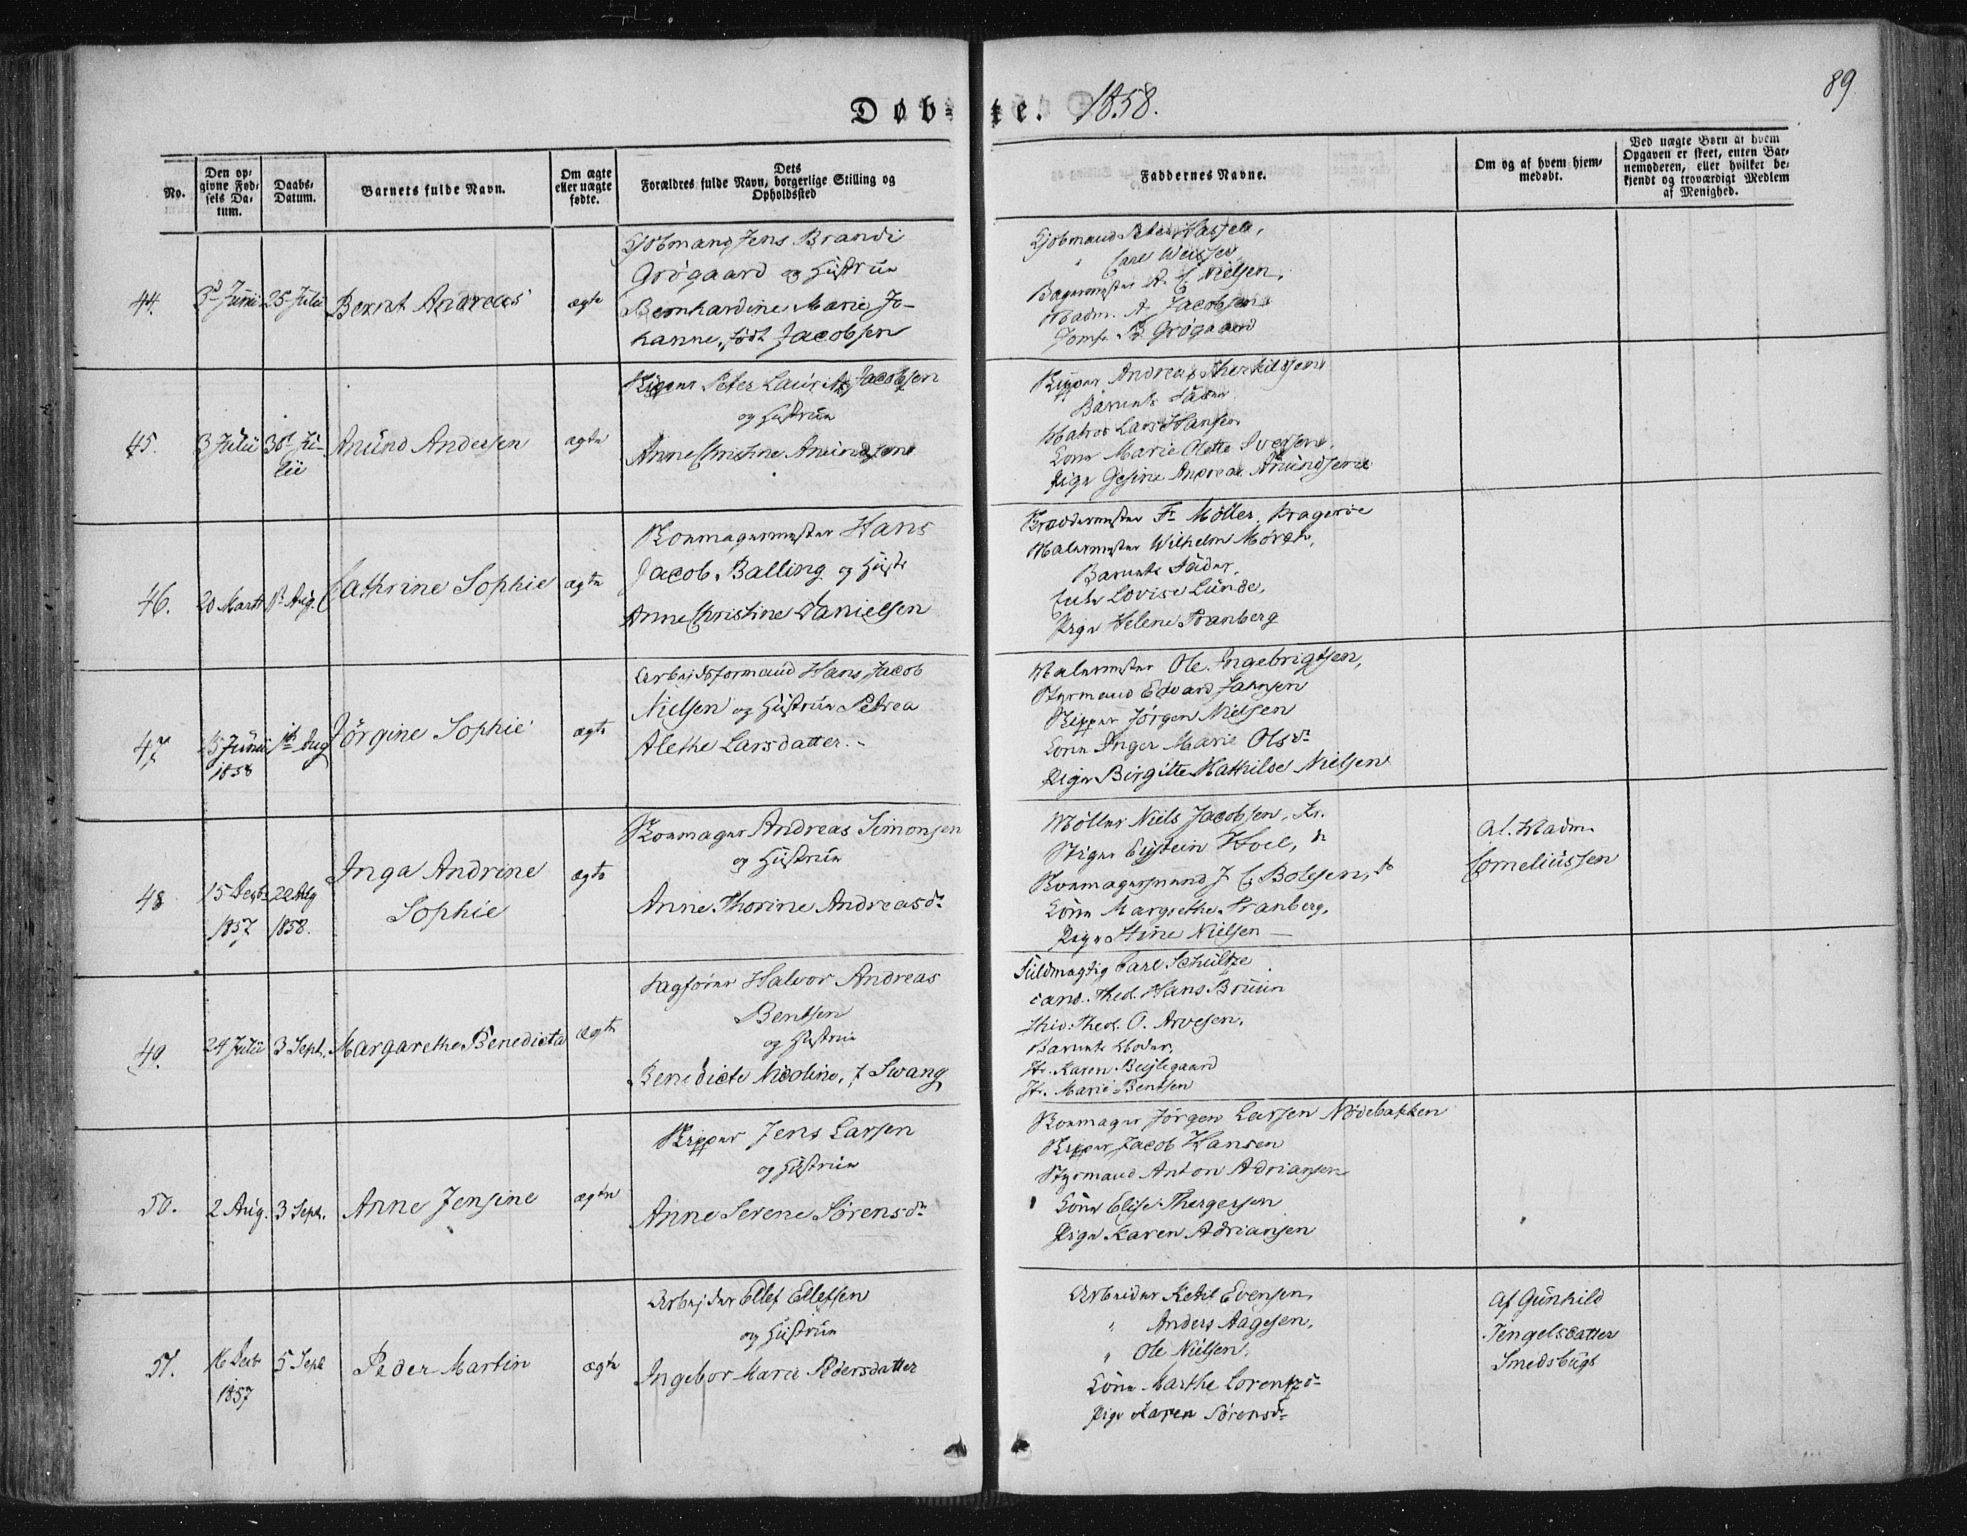 89
Døbte. 1858.
No.
Den opgivne Fødsels Datum.
Daabs-Datum.
Barnets fulde Navn.
Om ægte eller uægte fødte.
Dets Forældres fulde Navn, borgerlige Stilling og Opholdssted
Faddernes Navne.
Om og af hvem hjemmedøbt.
Ved uægte Børn at hvem Opgaven er skeet, enten Barnemoderen, eller hvilket bekjendt og troværdigt Medlem af Menighed.
44.
3d Juni
25 Julii
Bernt Andreas
ægte
Kjøbmand Jens Brandi
Grøgaard og Hustrue
Bernhardine Marie Jo-
hanne, født Jacobsen
Kjøbmand Peter
Bagermester A. C Nielsen,
Madm. A Jacobsen
Jomf. B Grøgaard
45.
3 Julii
30t Ju-
lii
Anund Andersen
ægte
Skipper Peter Lauritz Jacobsen
og Hustrue
Anne Christine Amundsen
Skipper Andreas Therkildsen
Barnets Fader
Matros Lars Hansen
Kone Marie Olette Svendsen
Pige Gesine Andrea Amundsen
46.
20 Marts
1st Aug.
Cathrine Sophie
ægte
Skomagermester Hans
Jacob Balling og Hustr
Anne Christine Danielsen
Fr Møller, Kragerøe
Malermester Wilhelm Mørch,
Barnets Fader,
Enke Lovise Lunde,
Pige Helene Tranberg
47
Junii
1858
Aug
Jörgine Sophie
ægte
Arbejdsformand Hans Jacob
Nielsen og Hustrue Petrea
Alethe Larsdatter.
Malermester Ole Ingebrigtsen,
Styrmand Edvard Jansen
Skipper Jørgen Nielsen
Kone Inger Marie Olsdr
Pige Birgitte Mathilde Nielsen
48
15 Decbr
1857
22 Aug
1858.
Inga Andrine
Sophie
ægte
Skomager Andreas Simonsen
og Hustrue
Anne Thorine Andreasdr
Møller Niels Jacobsen, Kr.
Stiger Eystein Hoel, do
Skomagersvend J C Bolesen, do
Kone Margrethe Tranberg,
Pige Stine Nielsen
af Madm.
Corneliussen
49.
24 Julii
3 Sept.
Margarethe Benedicta
ægte
Sagfører Halvor Andreas
Bentsen
og Hustrue
Benedicte Nicoline, f Swang
Fuldmægtig Carl Schultze
cand. Theol. Hans Bruun
Stud. Theol. O. Arvesen,
Barnets Moder,
Fr. Karen Bøylegaard
Fr. Marie Bentsen
50.
2 Aug.
3 Sept.
Anne Jensine
ægte
Skipper Jens Larsen
og Hustrue
Anne Serene Sørensdr
Skomager Jørgen Larsen Nødebakken
Skipper Jacob Hansen
Styrmand Anton Adriansen
Kone Elise Thergersen
Pige Karen Adriansen
51.
16 Decbr
1857
5 Sept
Peder Martin
ægte
Arbejder Ellef Ellefsen
og Hustrue
Ingebor Marie Pedersdatter
Arbeider Ketil Evensen,
" Anders Aagesen,
" Ole Nielsen,
Kone Marthe Lorentzdr
Pige Karen Sørensdr
af Gunhild
Tengelsdatter
Smedsbugt